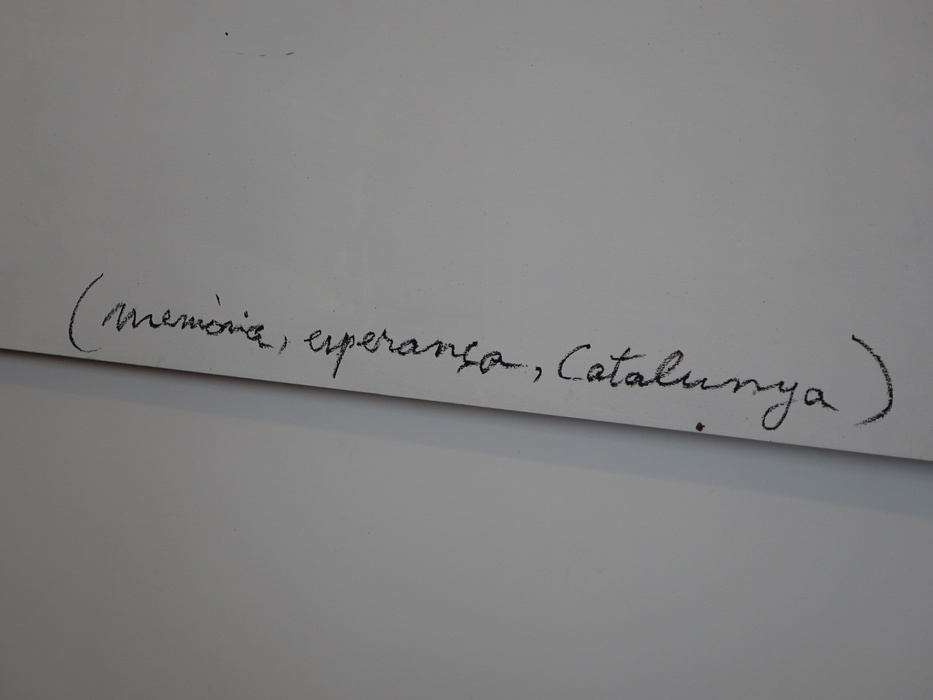 (memòria, esperança, Catalunya)